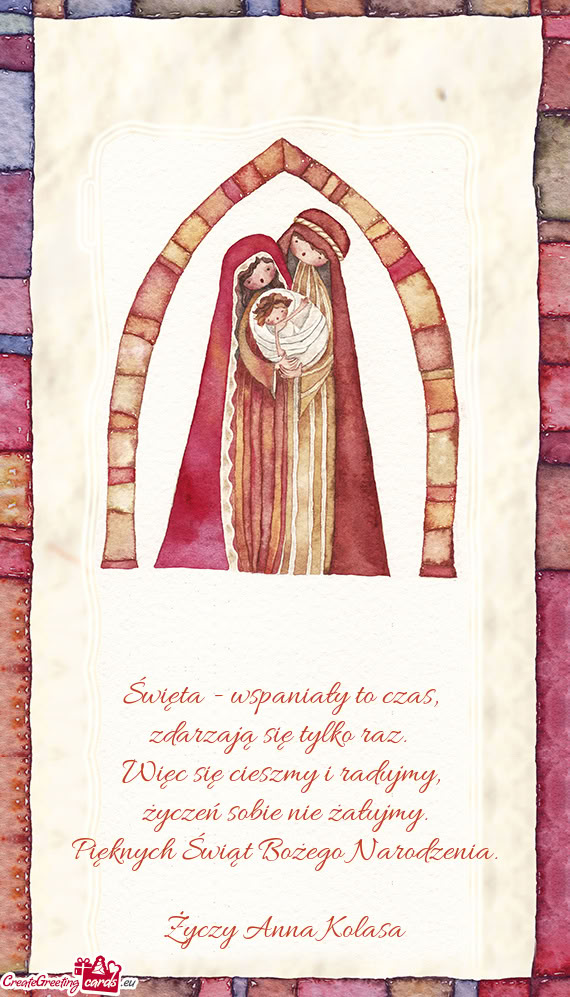 Święta - wspaniały to czas,
zdarzają się tylko raz.
Więc się cieszmy i radujmy,
życzeń sobie nie żałujmy.
Pięknych Świąt Bożego Narodzenia.
Życzy Anna Kolasa
CreateGreeting cards .eu